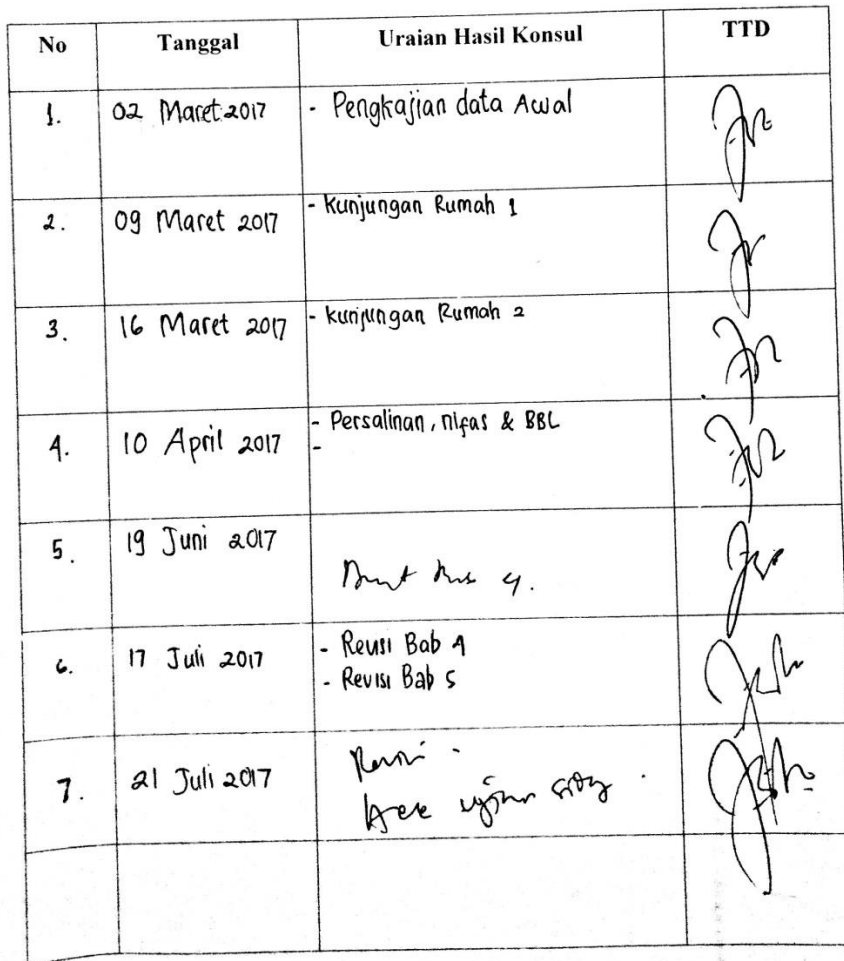 No Tanggal Uraian Hasil Konsul TTD
1. 02 Maret 2017 - Pengkajian data Awal
2. 09 Maret 2017 - Kunjungan Rumah 1
3. 16 Maret 2017 - kunjungan Rumah 2
4. 10 April 2017 - Persalinan, nifas & BBL
-
5. 19 Juni 2017
6. 17 Juli 2017 - Revisi Bab 4
- Revisi Bab 5
7. 21 Juli 2017 Revisi.
Acc ujian